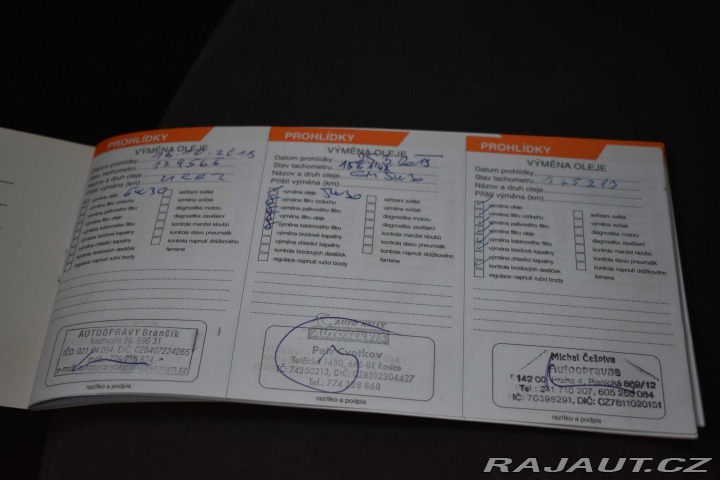 PROHLÍDKY
VÝMĚNA OLEJE
Datum prohlídky 16.10.2015
Stav tachometru 129566
Název a druh oleje
Příští výměna (km)
výměna oleje 5W30
výměna filtru vzduchu
výměna palivového filtru
výměna filtru oleje
výměna kabinového filtru
výměna brzdové kapaliny
výměna chladící kapaliny
kontrola brzdových destiček
regulace napnutí ruční brzdy
seřízení světel
výměna svíček
diagnostika motoru
diagnostika zavěšení
kontrola manžet kloubů
kontrola stavu pneumatik
kontrola napnutí drážkového
řemene
AUTOOPRAVY Brančík
Nechvalín 26, 696 31
IČO: 021 04 094, DIČ: CZ8407224265
razítko a podpis
PROHLÍDKY
VÝMĚNA OLEJE
Datum prohlídky
Stav tachometru
Název a druh oleje GM 5W30
Příští výměna (km)
výměna oleje 5W30
výměna filtru vzduchu
výměna palivového filtru
výměna filtru oleje
výměna kabinového filtru
výměna brzdové kapaliny
výměna chladící kapaliny
kontrola brzdových destiček
regulace napnutí ruční brzdy
seřízení světel
výměna svíček
diagnostika motoru
diagnostika zavěšení
kontrola manžet kloubů
kontrola stavu pneumatik
kontrola napnutí drážkového
řemene
AUTOSERVIS
Petr Cvetkov
Tetčická 1490, 665 01 Rosice
IČ: 74250213, DIČ: CZ8512304427
Tel.: 774 328 868
razítko a podpis
PROHLÍDKY
VÝMĚNA OLEJE
Datum prohlídky
Stav tachometru 175219
Název a druh oleje
Příští výměna (km)
výměna oleje
výměna filtru vzduchu
výměna palivového filtru
výměna filtru oleje
výměna kabinového filtru
výměna brzdové kapaliny
výměna chladící kapaliny
kontrola brzdových destiček
regulace napnutí ruční brzdy
seřízení světel
výměna svíček
diagnostika motoru
diagnostika zavěšení
kontrola manžet kloubů
kontrola stavu pneumatik
kontrola napnutí drážkového
řemene
Michal Češpiva
Autoopravna
142 00 Praha 4, Plánická 809/12
Tel.: 241 710 207, 605 259 084
IČ: 70398291, DIČ: CZ7811020151
razítko a podpis
RAJAUT.CZ